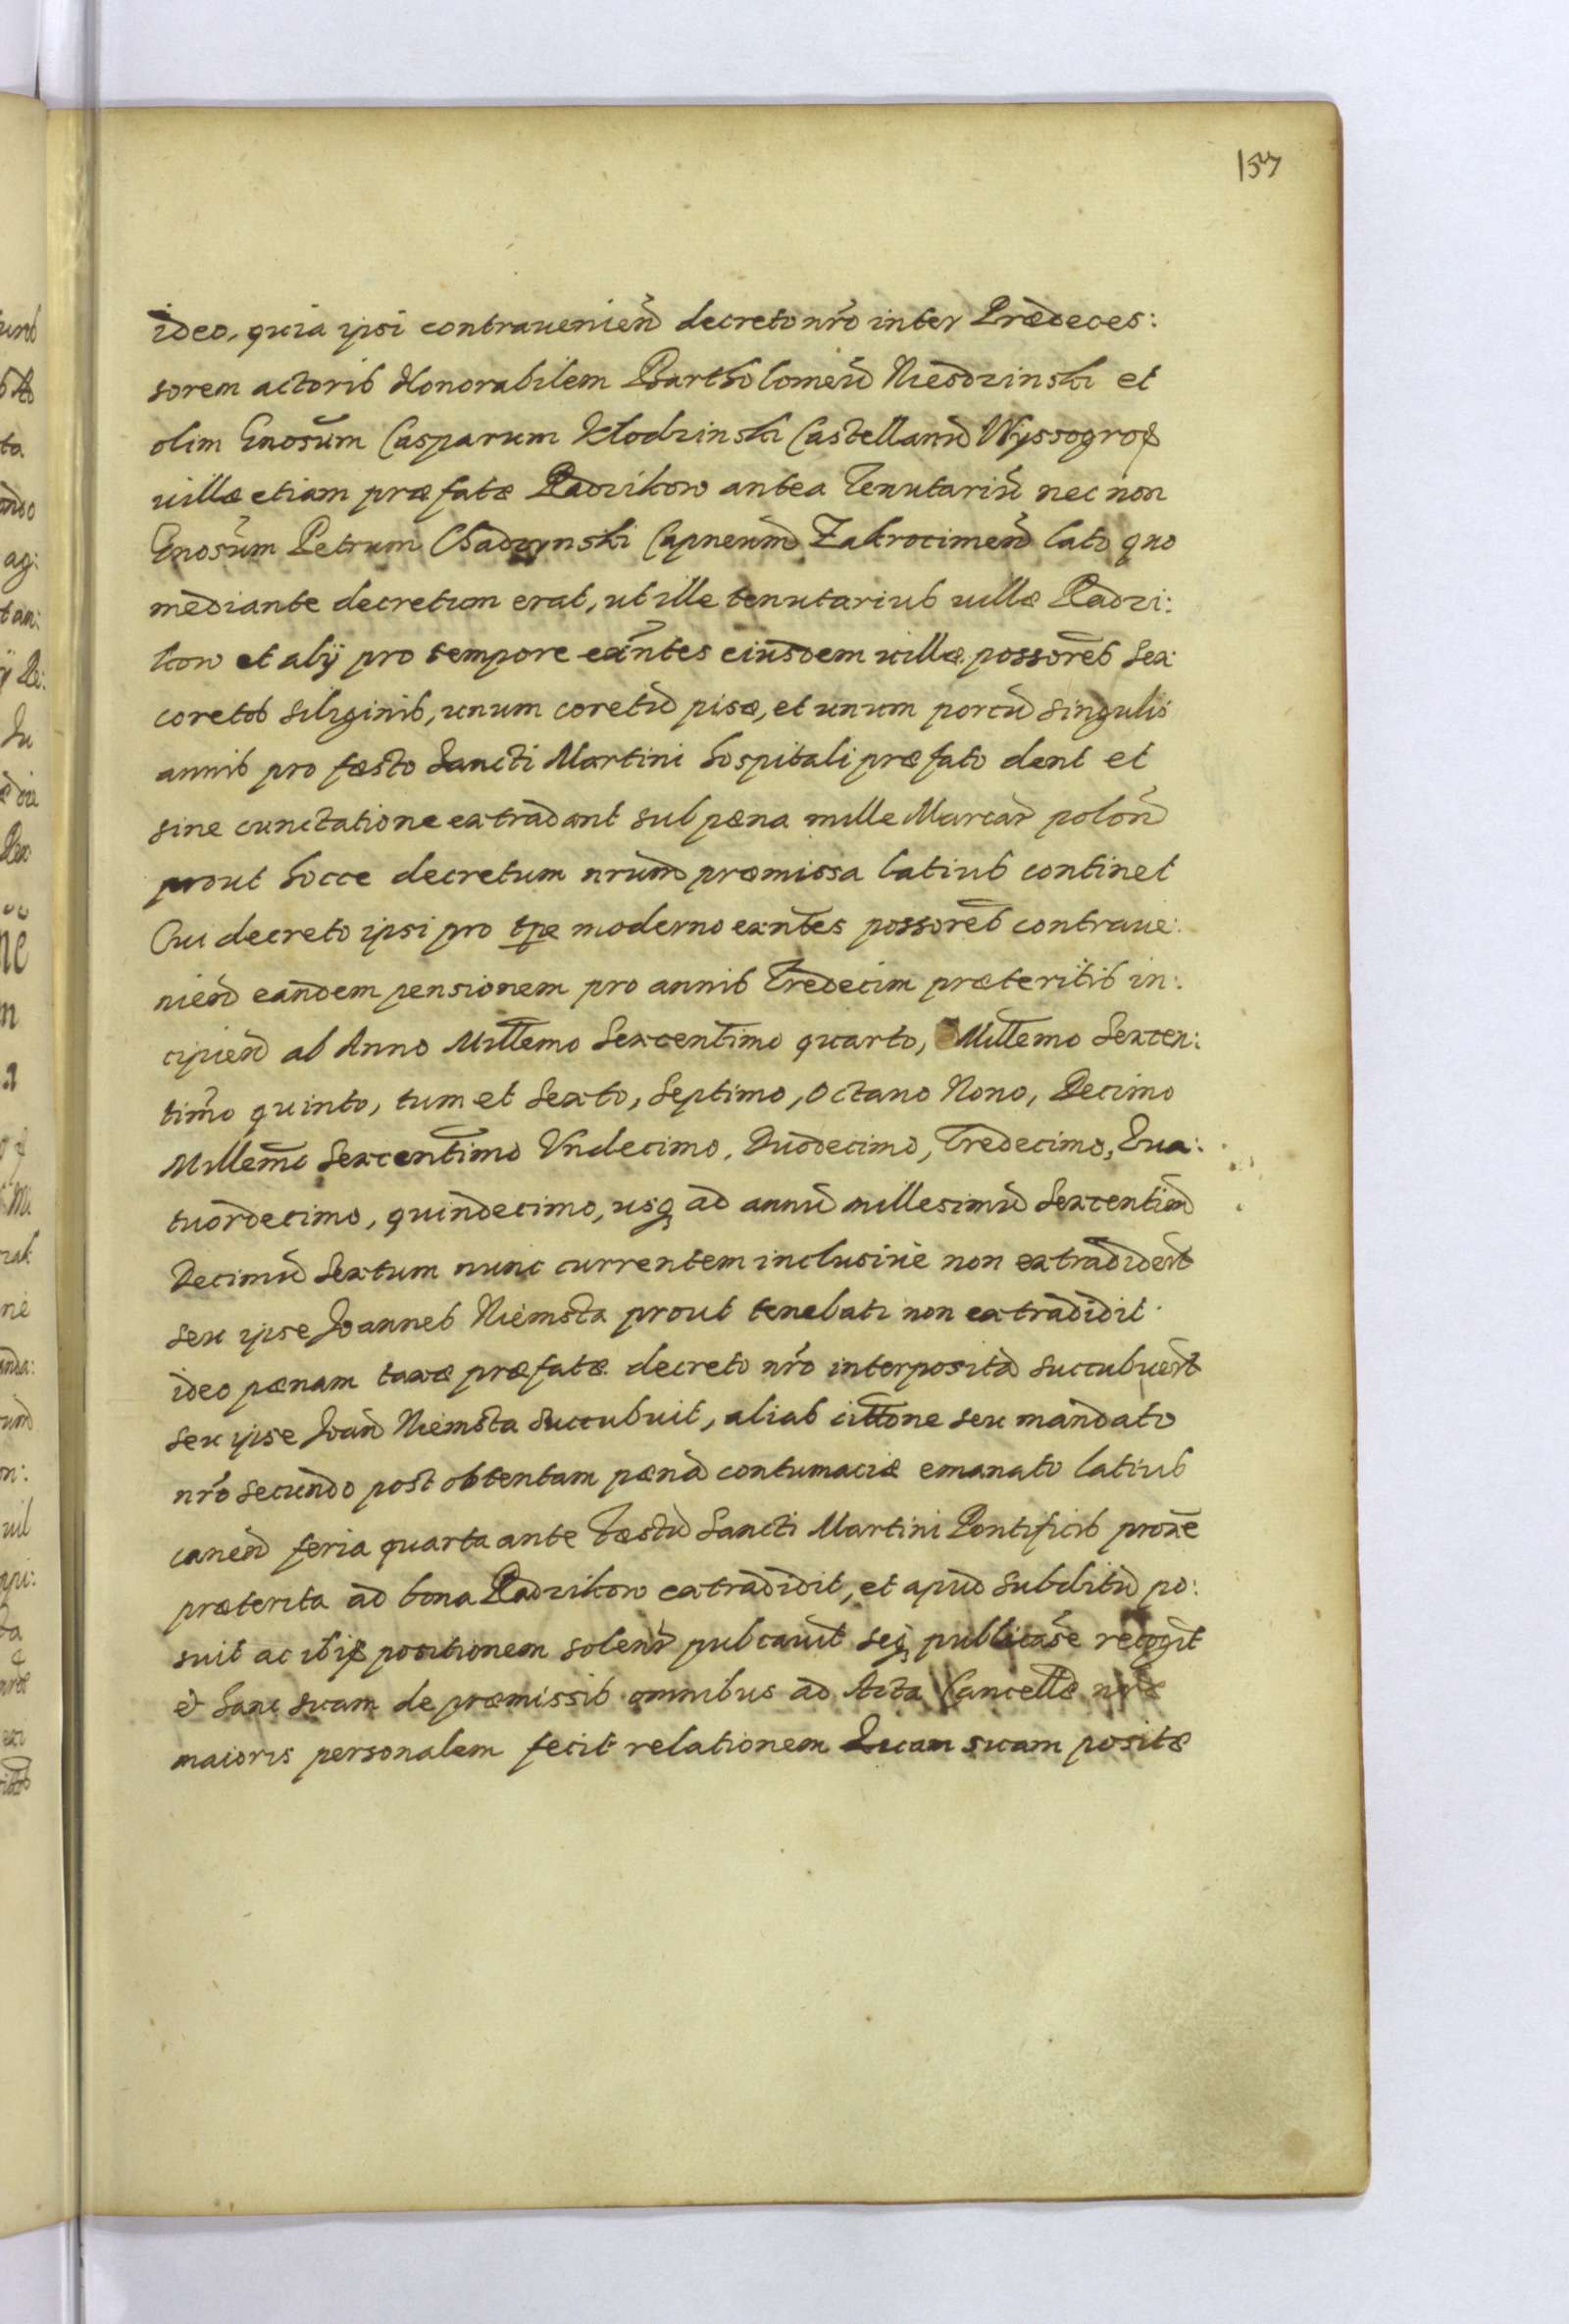 157
ideo, quia ipsi contravenien̄ decreto nr̄o inter Prædeces:
sorem actoris Honorabilem Bartholomeū Niesdzinski et
olim Gnosūm Casparum Klodzinski Castellanū Wyssogrod
villæ etiam præfatæ Radzikow antea Tenutariū nec non
Gnosūm Petrum Chadzynski Capneūm Zakrocimen̄ lato quo
mediante decretum erat, ut ille tenutarius villæ Radzi:
kow et alij pro tempore exn̄tes eiusdem villæ possorēs sex
coretos siliginis, unum coretū pisæ, et unum porcū singulis
annis pro fæsto Sancti Martini hospitali præfato dent et
sine cunctatione extradant sub pæna mille Marcar̄ polōn
prout hocce decretum nrūm præmissa latius continet
Cui decreto ipsi pro tp̄e moderno exn̄tes possorēs contrave:
nien̄ eandem pensionem pro annis Tredecim præteritis in:
cipien̄ ab Anno Millēmo Sexcentīmo quarto, Millēmo Sexcen:
tim̄o quinto, tum et Sexto, Septimo, Octavo Nono, Decimo
Millem̄o Sexcentīmo Undecimo, Duodecimo, Tredecimo, Qua:
tuordecimo, quindecimo, usq̨ ad annū millesimū Sexcentim̄
Decimū Sextum nunc currentem inclusive non extradider̄t
seu ipse Joannes Niemsta prout tenebatr non extradidit
ideo pænam taxæ præfatæ decreto nr̄o interpositā succubuer̄t
seu ipse Joan̄ Niemsta succubuit, alias citt̄one seu mandato
nr̄o secundo post obtentam pænā contumaciæ emanato latius
canen̄ feria quarta ante Fæstū Sancti Martini Pontificis proxē
præterita ad bona Radzikow extradidit, et apud subditū po:
suit ac ibid positionem solenr̄ pubcavit seq̨ publicasse recogīt
& hanc suam de præmissis omnibus ad Acta Cancellæ nr̄æ
maioris personalem fecit relationem Quam suam positæ